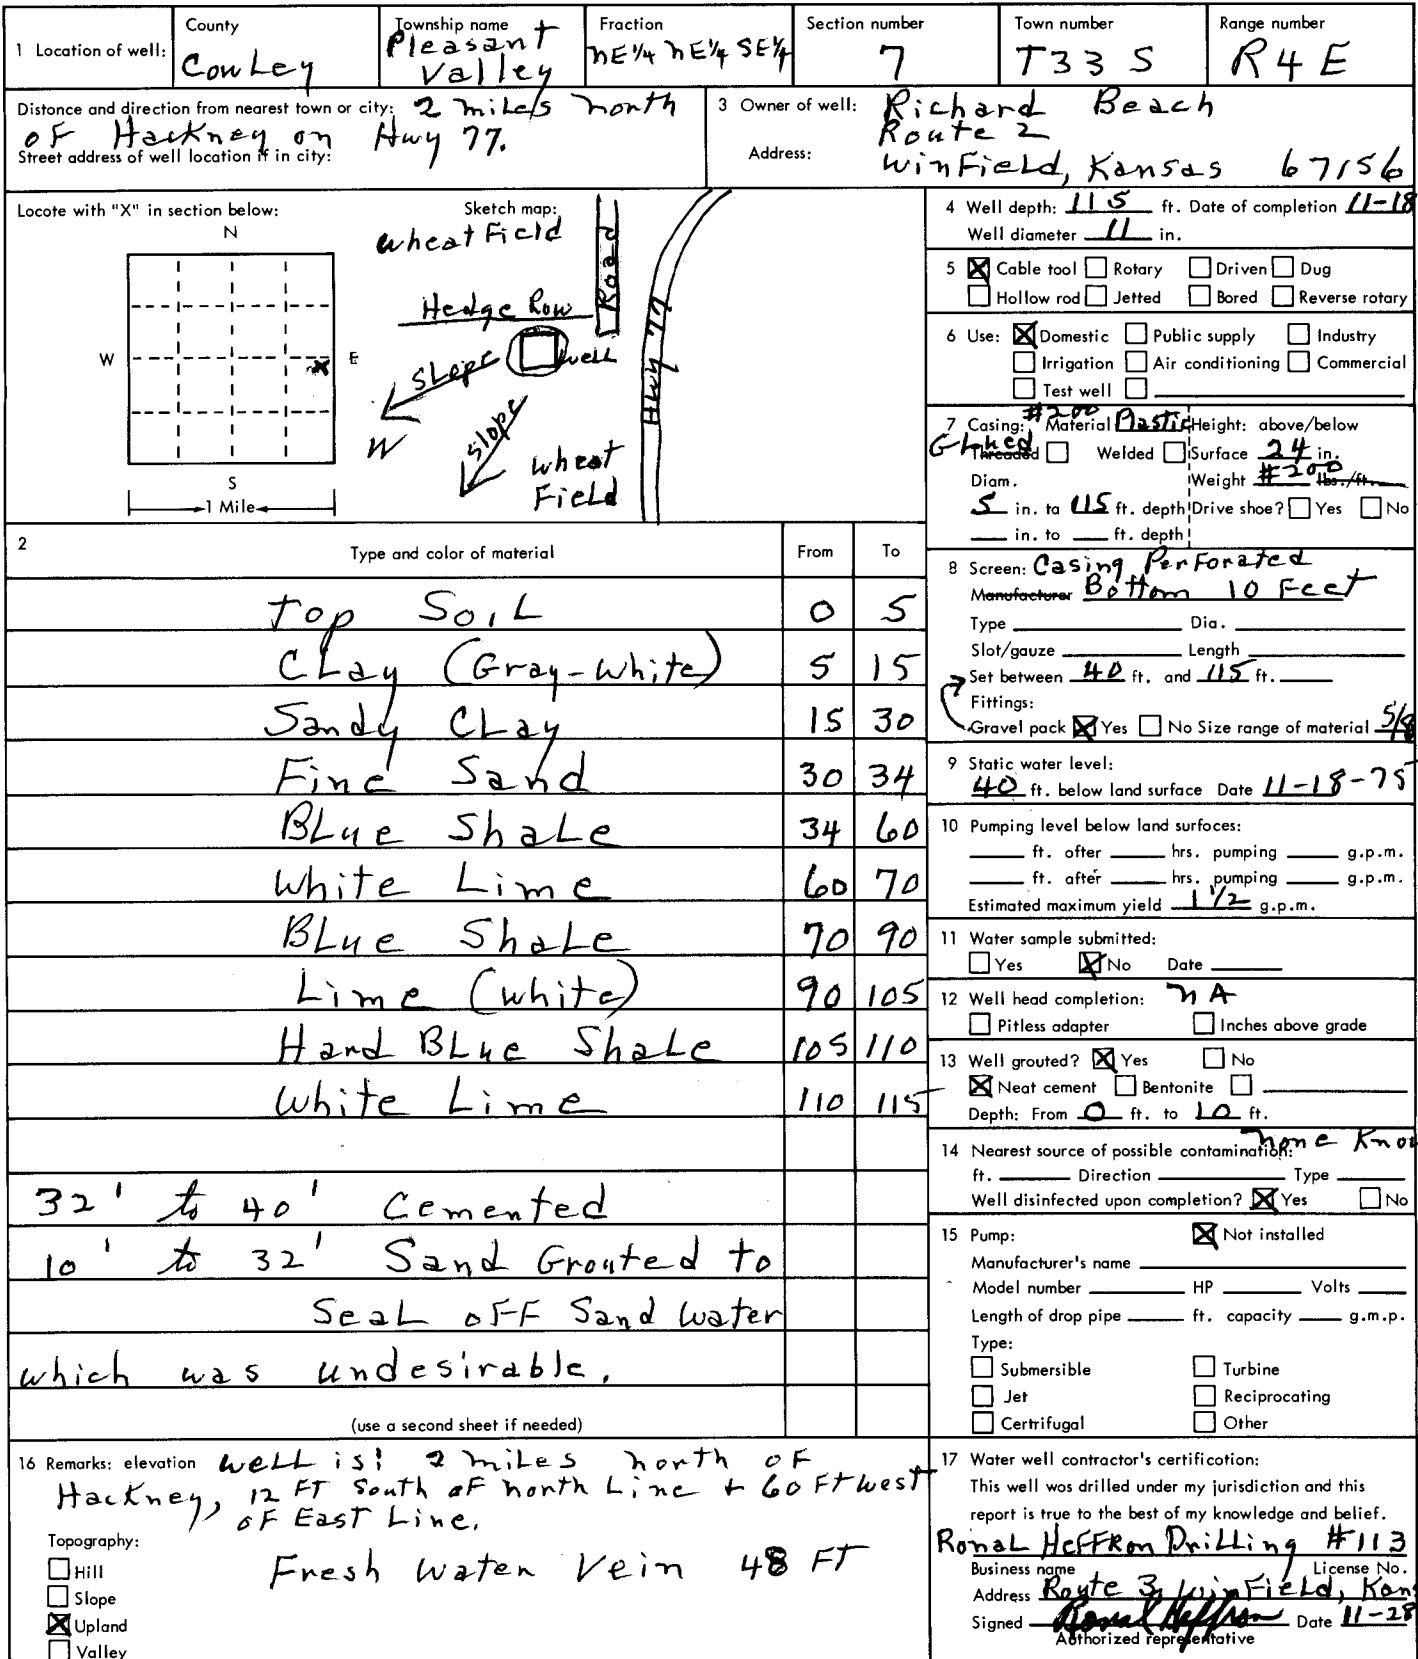 1 Location of well: County Cowley Township name Pleasant Valley Fraction NE 1/4 NE 1/4 SE 1/4 Section number 7 Town number T33 S Range number R4E
Distance and direction from nearest town or city: 2 miles north
of Hackney on Hwy 77.
Street address of well location if in city:
3 Owner of well: Richard Beach
Route 2
Address: Winfield, Kansas 67156
Locate with "X" in section below:
N
W E
X
S
1 Mile
Sketch map:
wheat Field
Road
Hedge Row
well
Slope
W
Slope
wheat
Field
Hwy 77
4 Well depth: 115 ft. Date of completion 11-18
Well diameter 11 in.
5 X Cable tool Rotary Driven Dug
Hollow rod Jetted Bored Reverse rotary
6 Use: X Domestic Public supply Industry
Irrigation Air conditioning Commercial
Test well
7 Casing: #200 Material Plastic Height: above/below
Glued Threaded Welded Surface 24 in.
Diam. Weight #200 lbs./ft.
5 in. to 115 ft. depth Drive shoe? Yes No
in. to ft. depth
8 Screen: Casing Perforated
Manufacturer Bottom 10 Feet
Type Dia.
Slot/gauze Length
Set between 40 ft. and 115 ft.
Fittings:
Gravel pack X Yes No Size range of material 5/8
9 Static water level:
40 ft. below land surface Date 11-18-75
10 Pumping level below land surfaces:
ft. after hrs. pumping g.p.m.
ft. after hrs. pumping g.p.m.
Estimated maximum yield 1 1/2 g.p.m.
11 Water sample submitted:
Yes X No Date
12 Well head completion: NA
Pitless adapter Inches above grade
13 Well grouted? X Yes No
X Neat cement Bentonite
Depth: From 0 ft. to 10 ft.
14 Nearest source of possible contamination: none Know
ft. Direction Type
Well disinfected upon completion? X Yes No
15 Pump: X Not installed
Manufacturer's name
Model number HP Volts
Length of drop pipe ft. capacity g.m.p.
Type:
Submersible Turbine
Jet Reciprocating
Certrifugal Other
2 Type and color of material From To
Top Soil 0 5
Clay (Gray-White) 5 15
Sandy Clay 15 30
Fine Sand 30 34
Blue Shale 34 60
White Lime 60 70
Blue Shale 70 90
Lime (white) 90 105
Hard Blue Shale 105 110
White Lime 110 115
32' to 40' Cemented
10' to 32' Sand Grouted to
Seal off Sand Water
which was undesirable.
(use a second sheet if needed)
16 Remarks: elevation Well is: 2 miles north of
Hackney, 12 FT South of north Line + 60 FT west
of East Line.
Topography:
Hill
Slope
X Upland
Valley
Fresh Water Vein 48 FT
17 Water well contractor's certification:
This well was drilled under my jurisdiction and this
report is true to the best of my knowledge and belief.
Ronal Heffron Drilling #113
Business name License No.
Address Route 3, Winfield, Kans
Signed Ronal Heffron Date 11-28
Authorized representative